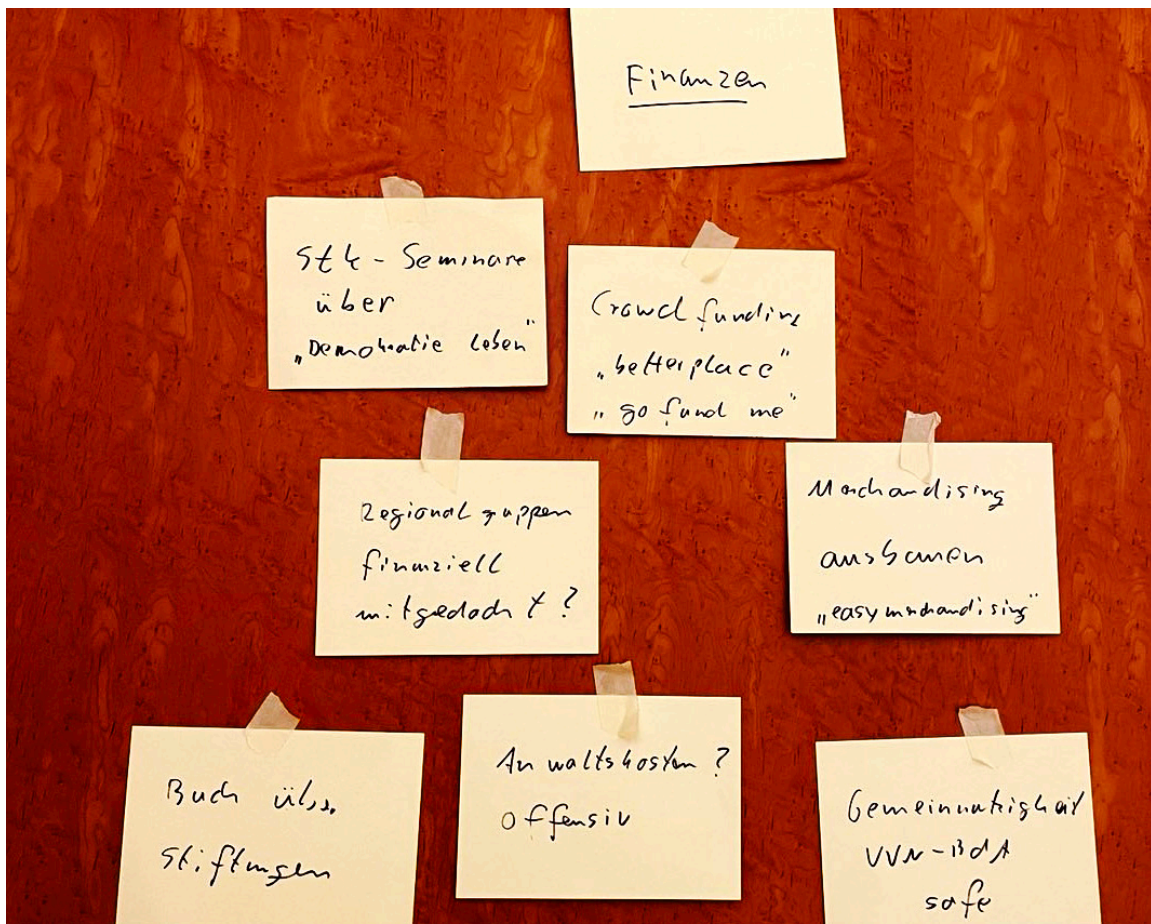 Finanzen
Stk-Seminare
über
„Demokratie leben"
Crowdfunding
„betterplace"
„go fund me"
Regionalgruppen
finanziell
mitgedacht?
Merchandising
ausbauen
„easymerchandising"
Buch über
Stiftungen
Anwaltskosten?
offensiv
Gemeinnützigkeit
VVN-BdA
safe